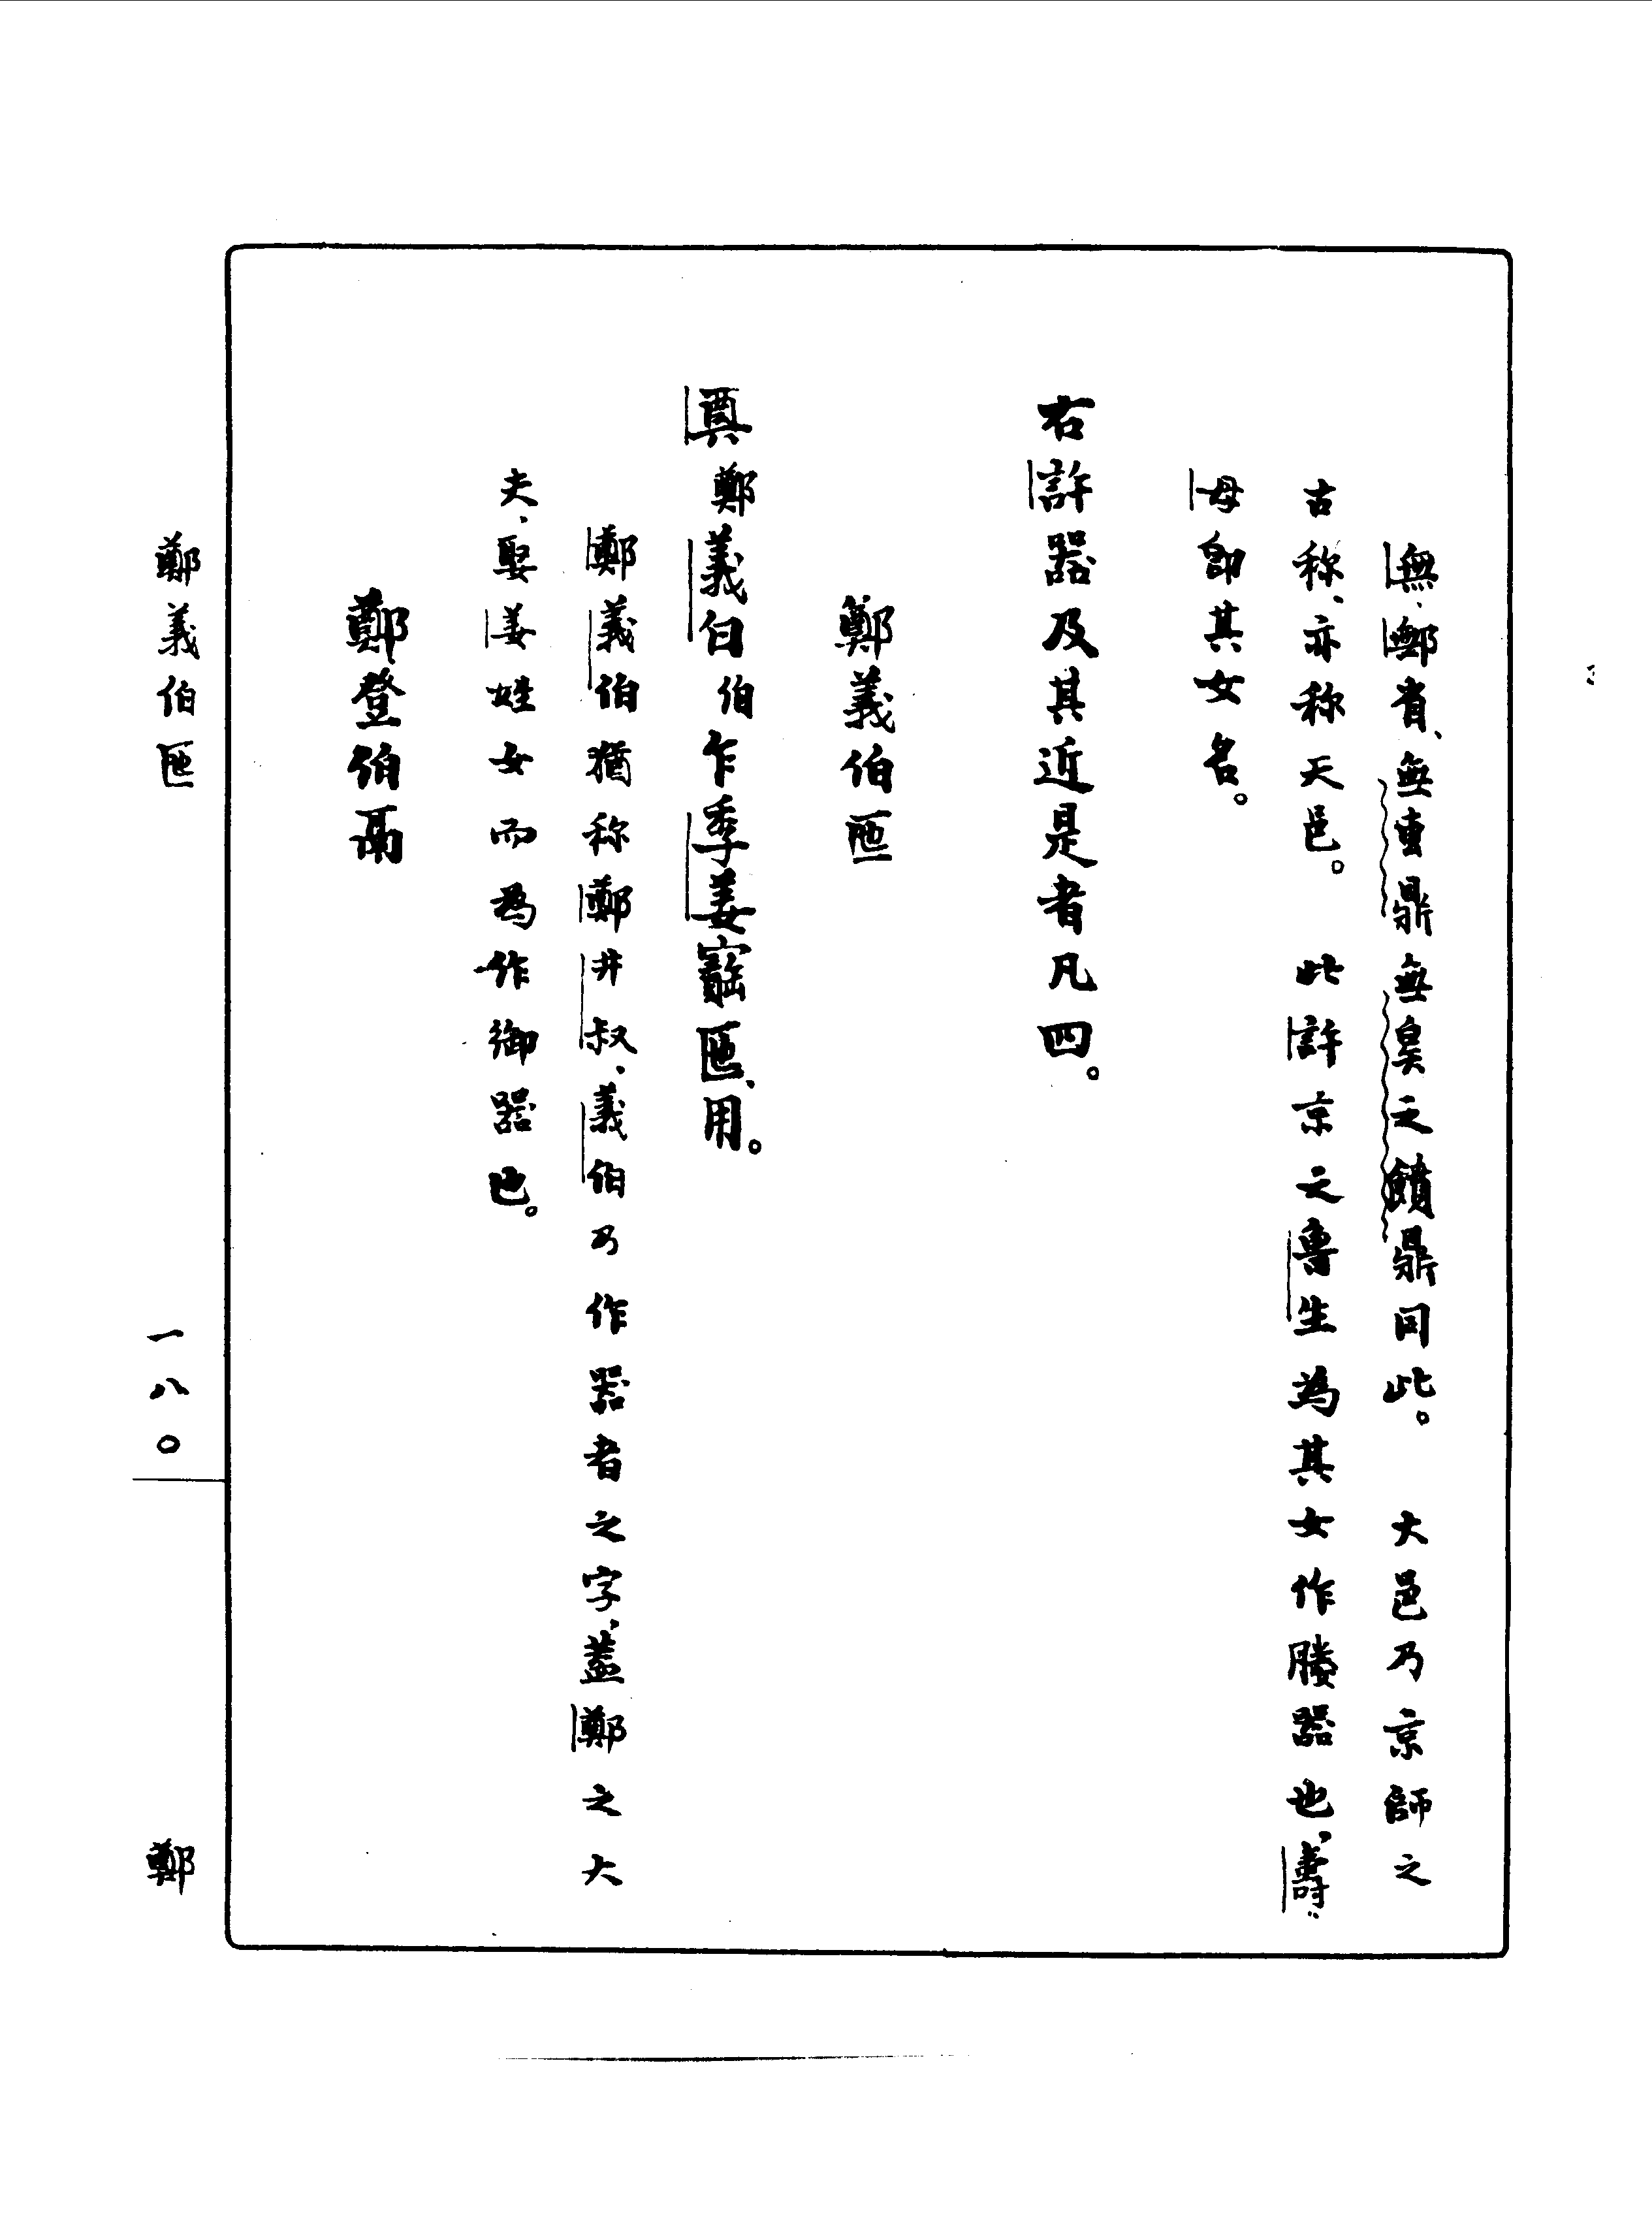 無、鄦省、無叀鼎無之饙鼎同此。 大邑乃京師之
古称、亦称天邑。 此許京之魯生為其女作媵器也、壽
母即其女名。
右許器及其近是者凡四。
鄭義伯匜
奠鄭義白伯乍季姜匜、用。
鄭義伯猶称鄭井叔、義伯乃作器者之字、蓋鄭之大
夫、娶姜姓女而為作御器也。
鄭登伯鬲
鄭義伯匜 一八〇 鄭